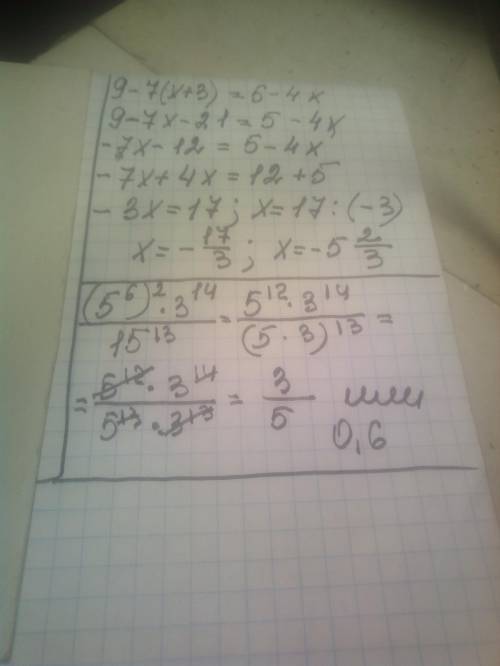 9-7(x+3) = 5-4x
9-7x-21 = 5-4x
-7x-12 = 5-4x
-7x+4x = 12+5
-3x = 17; x = 17 : (-3)
x = -17/3; x = -5 2/3
(5⁶)² · 3¹⁴ / 15¹³ = 5¹² · 3¹⁴ / (5 · 3)¹³ =
= 5¹² · 3¹⁴ / 5¹³ · 3¹³ = 3/5 или
0,6